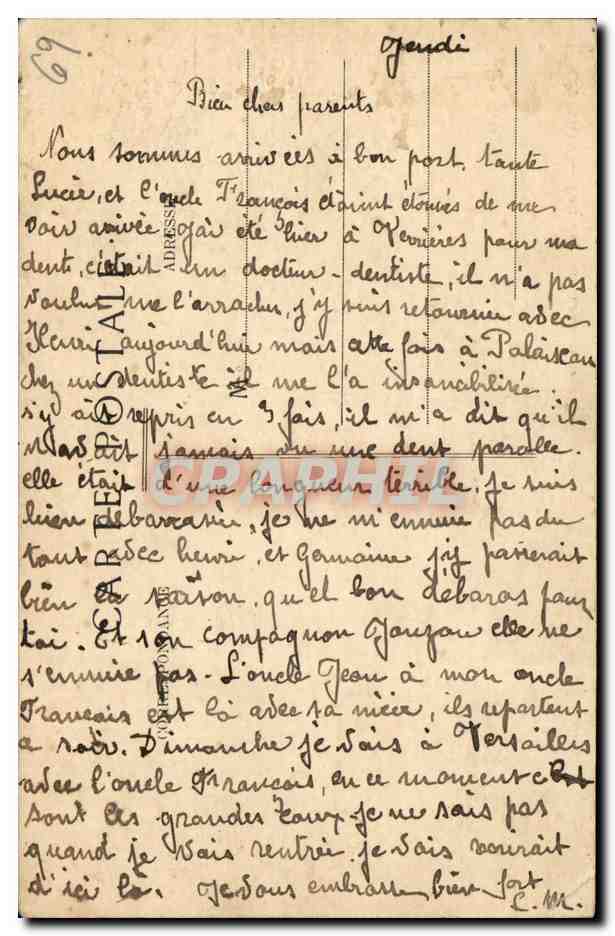 69
Jeudi
Bien chers parents
Nous sommes arrivées à bon port, tante
Lucie, et l'oncle François étaint étonnés de me
voir arrivée j'ai été hier à Verrières pour ma
dent, c'était un docteur-dentiste, il n'a pas
voulut me l'arracher, j'y suis retournée avec
Henri aujourd'hui mais cette fois à Palaiseau
chez un dentiste il me l'a insancibilisée.
s'y à repris en 3 fois, il m'a dit qu'il
n'avait jamais vu une dent pareille.
elle était d'une longueur terrible, je suis
bien débarrasée, je ne m'ennuie pas du
tout avec henri, et Germaine j'y passerait
bien la saison, quel bon débaras pour
toi. Et son compagnon elle ne
s'ennuie pas - L'oncle Jean à mon oncle
François est là avec sa nièce, ils repartent
ce soir. Dimanche je vais à Versailles
avec l'oncle François, en ce moment c'est
sont les grandes eaux je ne sais pas
quand je vais rentrée, je vais
d'ici là. Je vous embrasse bien fort
L. M.
CARTE POSTALE
CORRESPONDANCE
ADRESSE
M
CPAPHIL